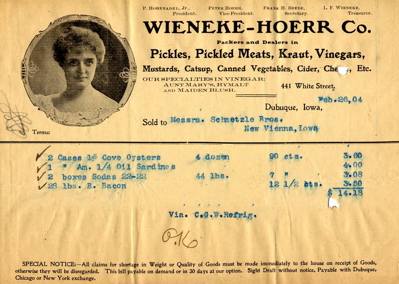 P. Hohenadel, Jr., President.
Peter Hoerr, Vice-President.
Frank H. Reese, Secretary.
L. F. Wieneke, Treasurer.
WIENEKE-HOERR CO.
Packers and Dealers in
Pickles, Pickled Meats, Kraut, Vinegars,
Mustards, Catsup, Canned Vegetables, Cider, Cheese, Etc.
OUR SPECIALTIES IN VINEGAR:
AUNT MARY'S, HYMALT
AND MAIDEN BLUSH.
441 White Street,
Feb. 26, 04
Dubuque, Iowa,
Terms:
Sold to Messrs. Schetzle Bros.
New Vienna, Iowa
2 Cases 1# Cove Oysters 4 dozen 90 cts. 3.60
1 " Am. 1/4 Oil Sardines 4.00
2 boxes Sodas 22-22 44 lbs. 7 " 3.08
28 lbs. B. Bacon 12 1/2 cts. 3.50
$ 14.18
Via. C.G.W.Refrig.
O.K
SPECIAL NOTICE:—All claims for shortage in Weight or Quality of Goods must be made immediately to the house on receipt of Goods,
otherwise they will be disregarded. This bill payable on demand or in 30 days at our option. Sight Draft without notice. Payable with Dubuque,
Chicago or New York exchange.